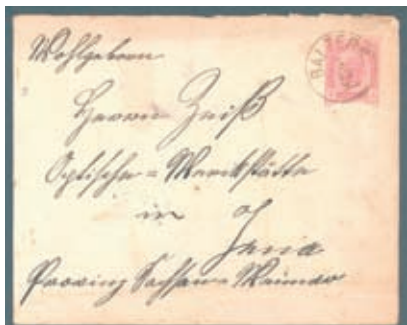 Wohlgeborn
Herrn Zeiß
Optische = Werkstätte
in
Jena
Provinz Sachsen = Weimar
BALZERS